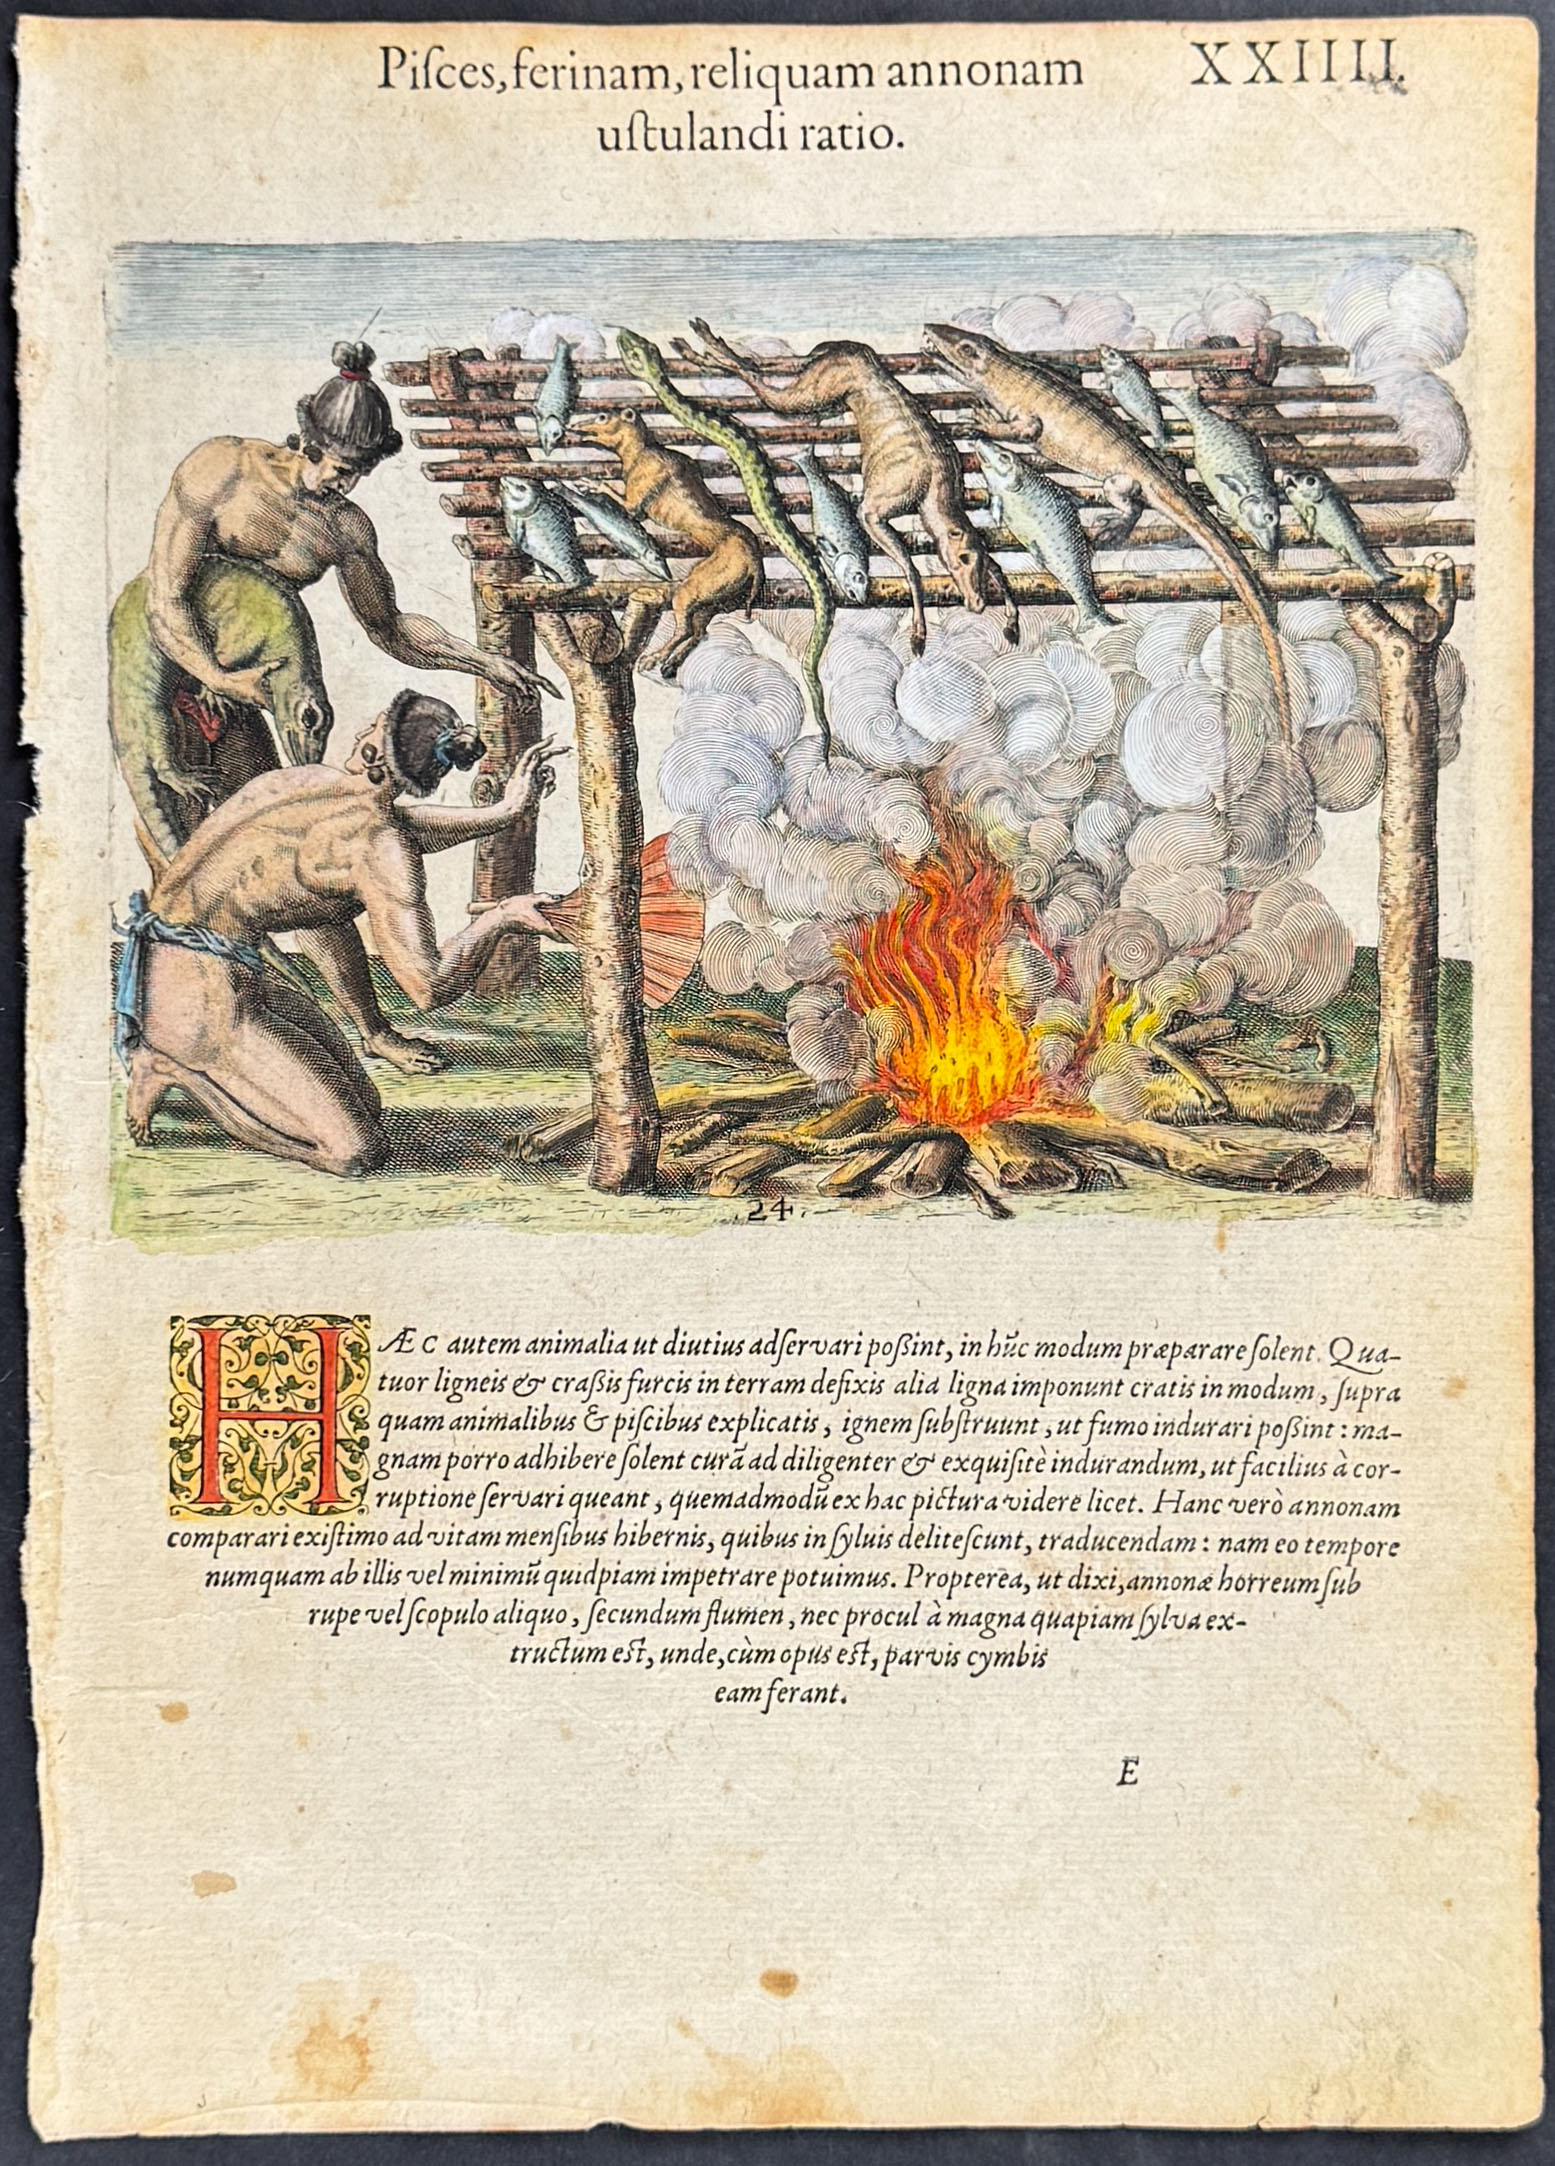 Piſces, ferinam, reliquam annonam
XXIIII.
uſtulandi ratio.
24.
HÆC autem animalia ut diutius adſervari poßint, in hũc modum præparare ſolent. Qua-
tuor ligneis & craßis furcis in terram defixis alia ligna imponunt cratis in modum, ſupra
quam animalibus & piſcibus explicatis, ignem ſubſtruunt, ut fumo indurari poßint: ma-
gnam porro adhibere ſolent curã ad diligenter & exquiſitè indurandum, ut facilius à cor-
ruptione ſervari queant, quemadmodũ ex hac pictura videre licet. Hanc verò annonam
comparari exiſtimo ad vitam menſibus hibernis, quibus in ſyluis deliteſcunt, traducendam: nam eo tempore
numquam ab illis vel minimũ quidpiam impetrare potuimus. Propterea, ut dixi, annonæ horreum ſub
rupe vel ſcopulo aliquo, ſecundum flumen, nec procul à magna quapiam ſylva ex-
tructum eſt, unde, cùm opus eſt, parvis cymbis
eam ferant.
E